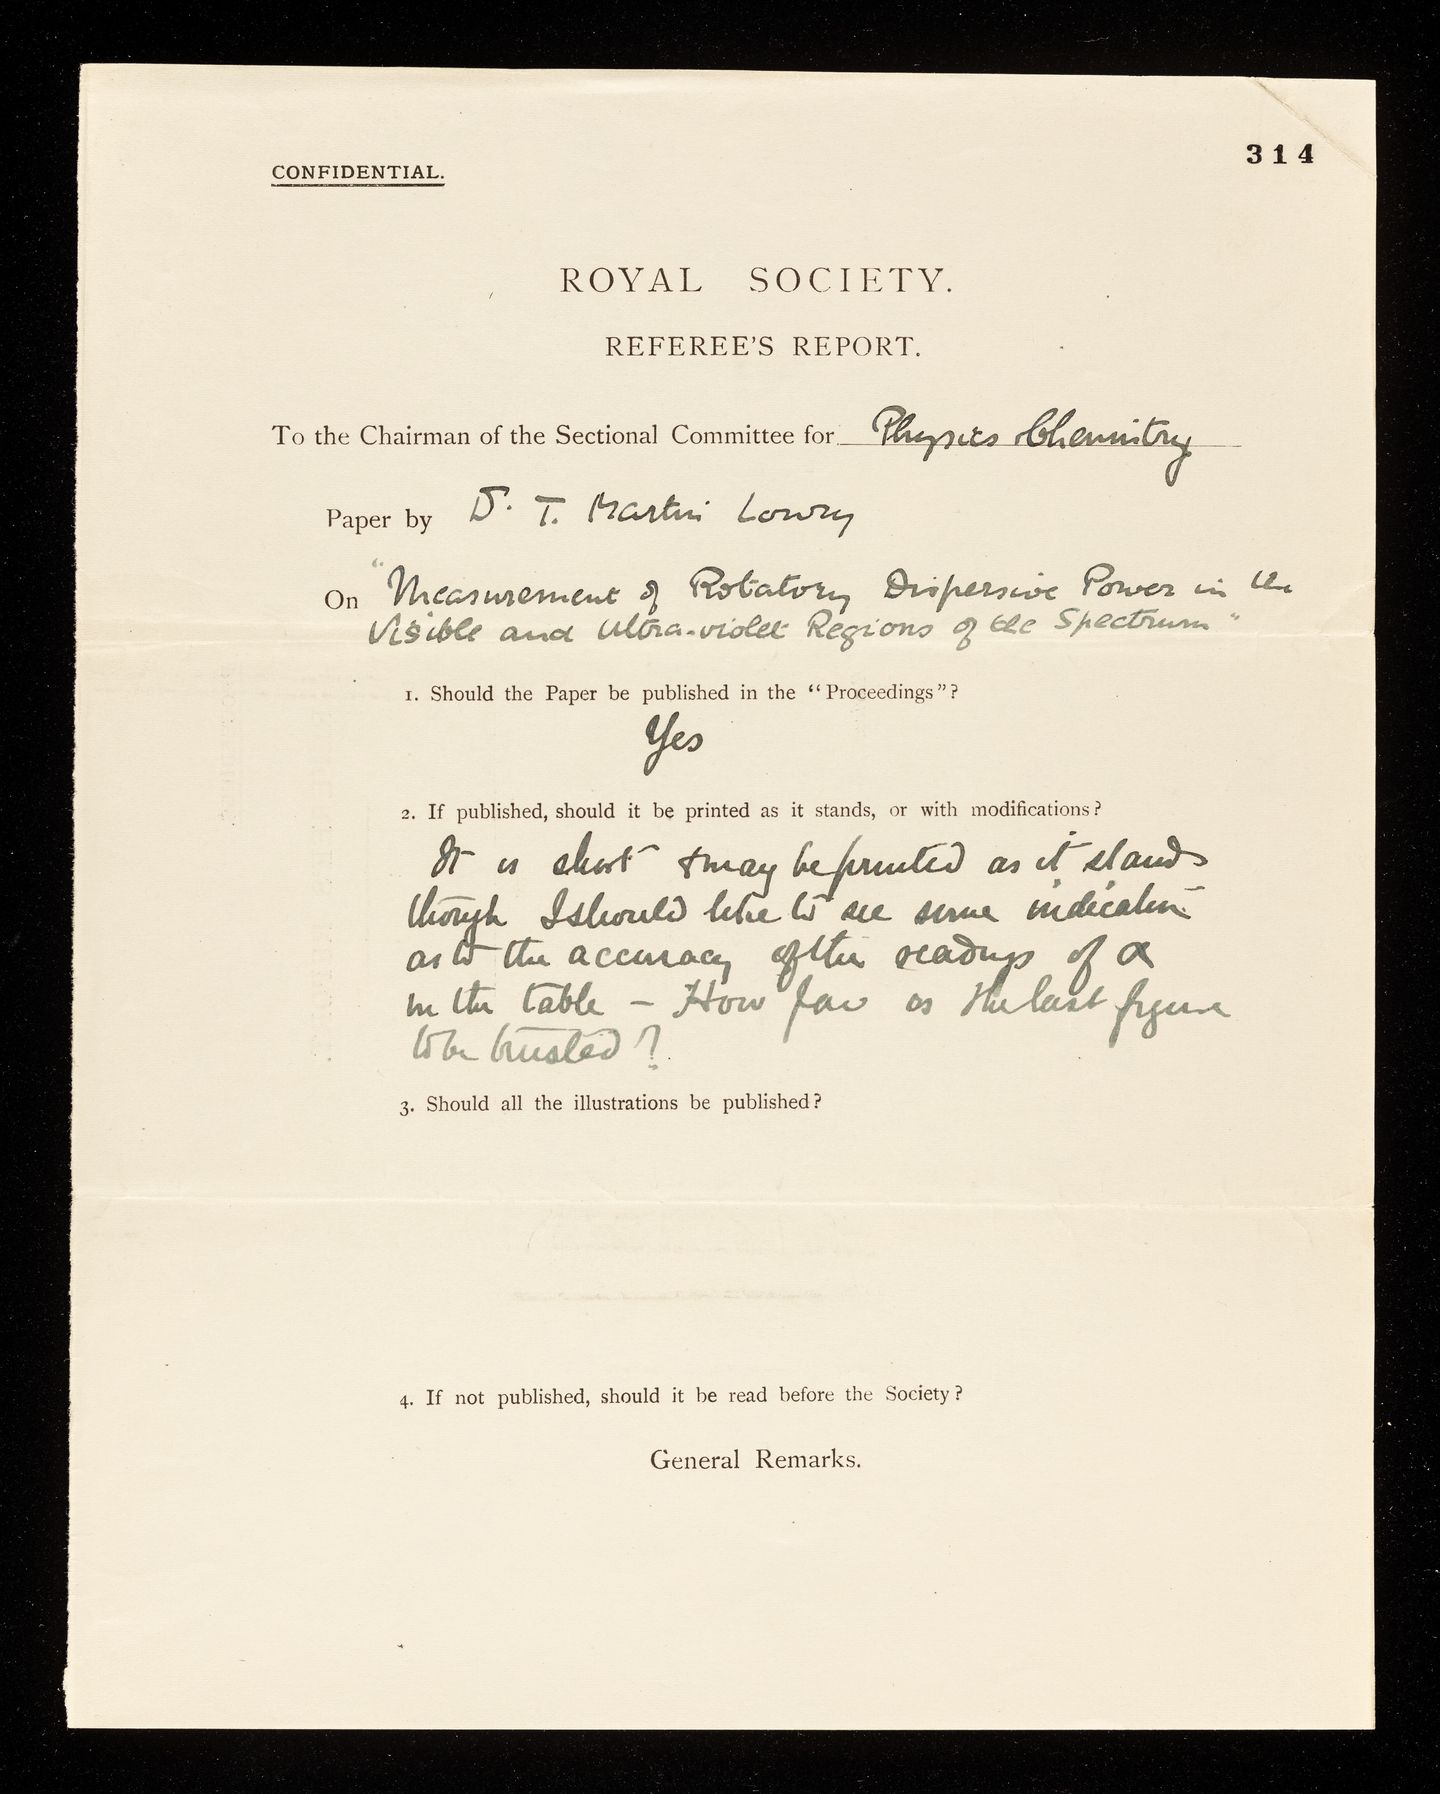 CONFIDENTIAL.
314
ROYAL SOCIETY.
REFEREE'S REPORT.
To the Chairman of the Sectional Committee for Physics & Chemistry
Paper by Dr. T. Martin Lowry
On "Measurement of Rotatory Dispersive Power in the
Visible and Ultra-violet Regions of the Spectrum"
1. Should the Paper be published in the "Proceedings"?
Yes
2. If published, should it be printed as it stands, or with modifications?
It is short & may be printed as it stands
though I should like to see some indication
as to the accuracy of the readings of α
in the table – How far is the last figure
to be trusted?
3. Should all the illustrations be published?
4. If not published, should it be read before the Society?
General Remarks.